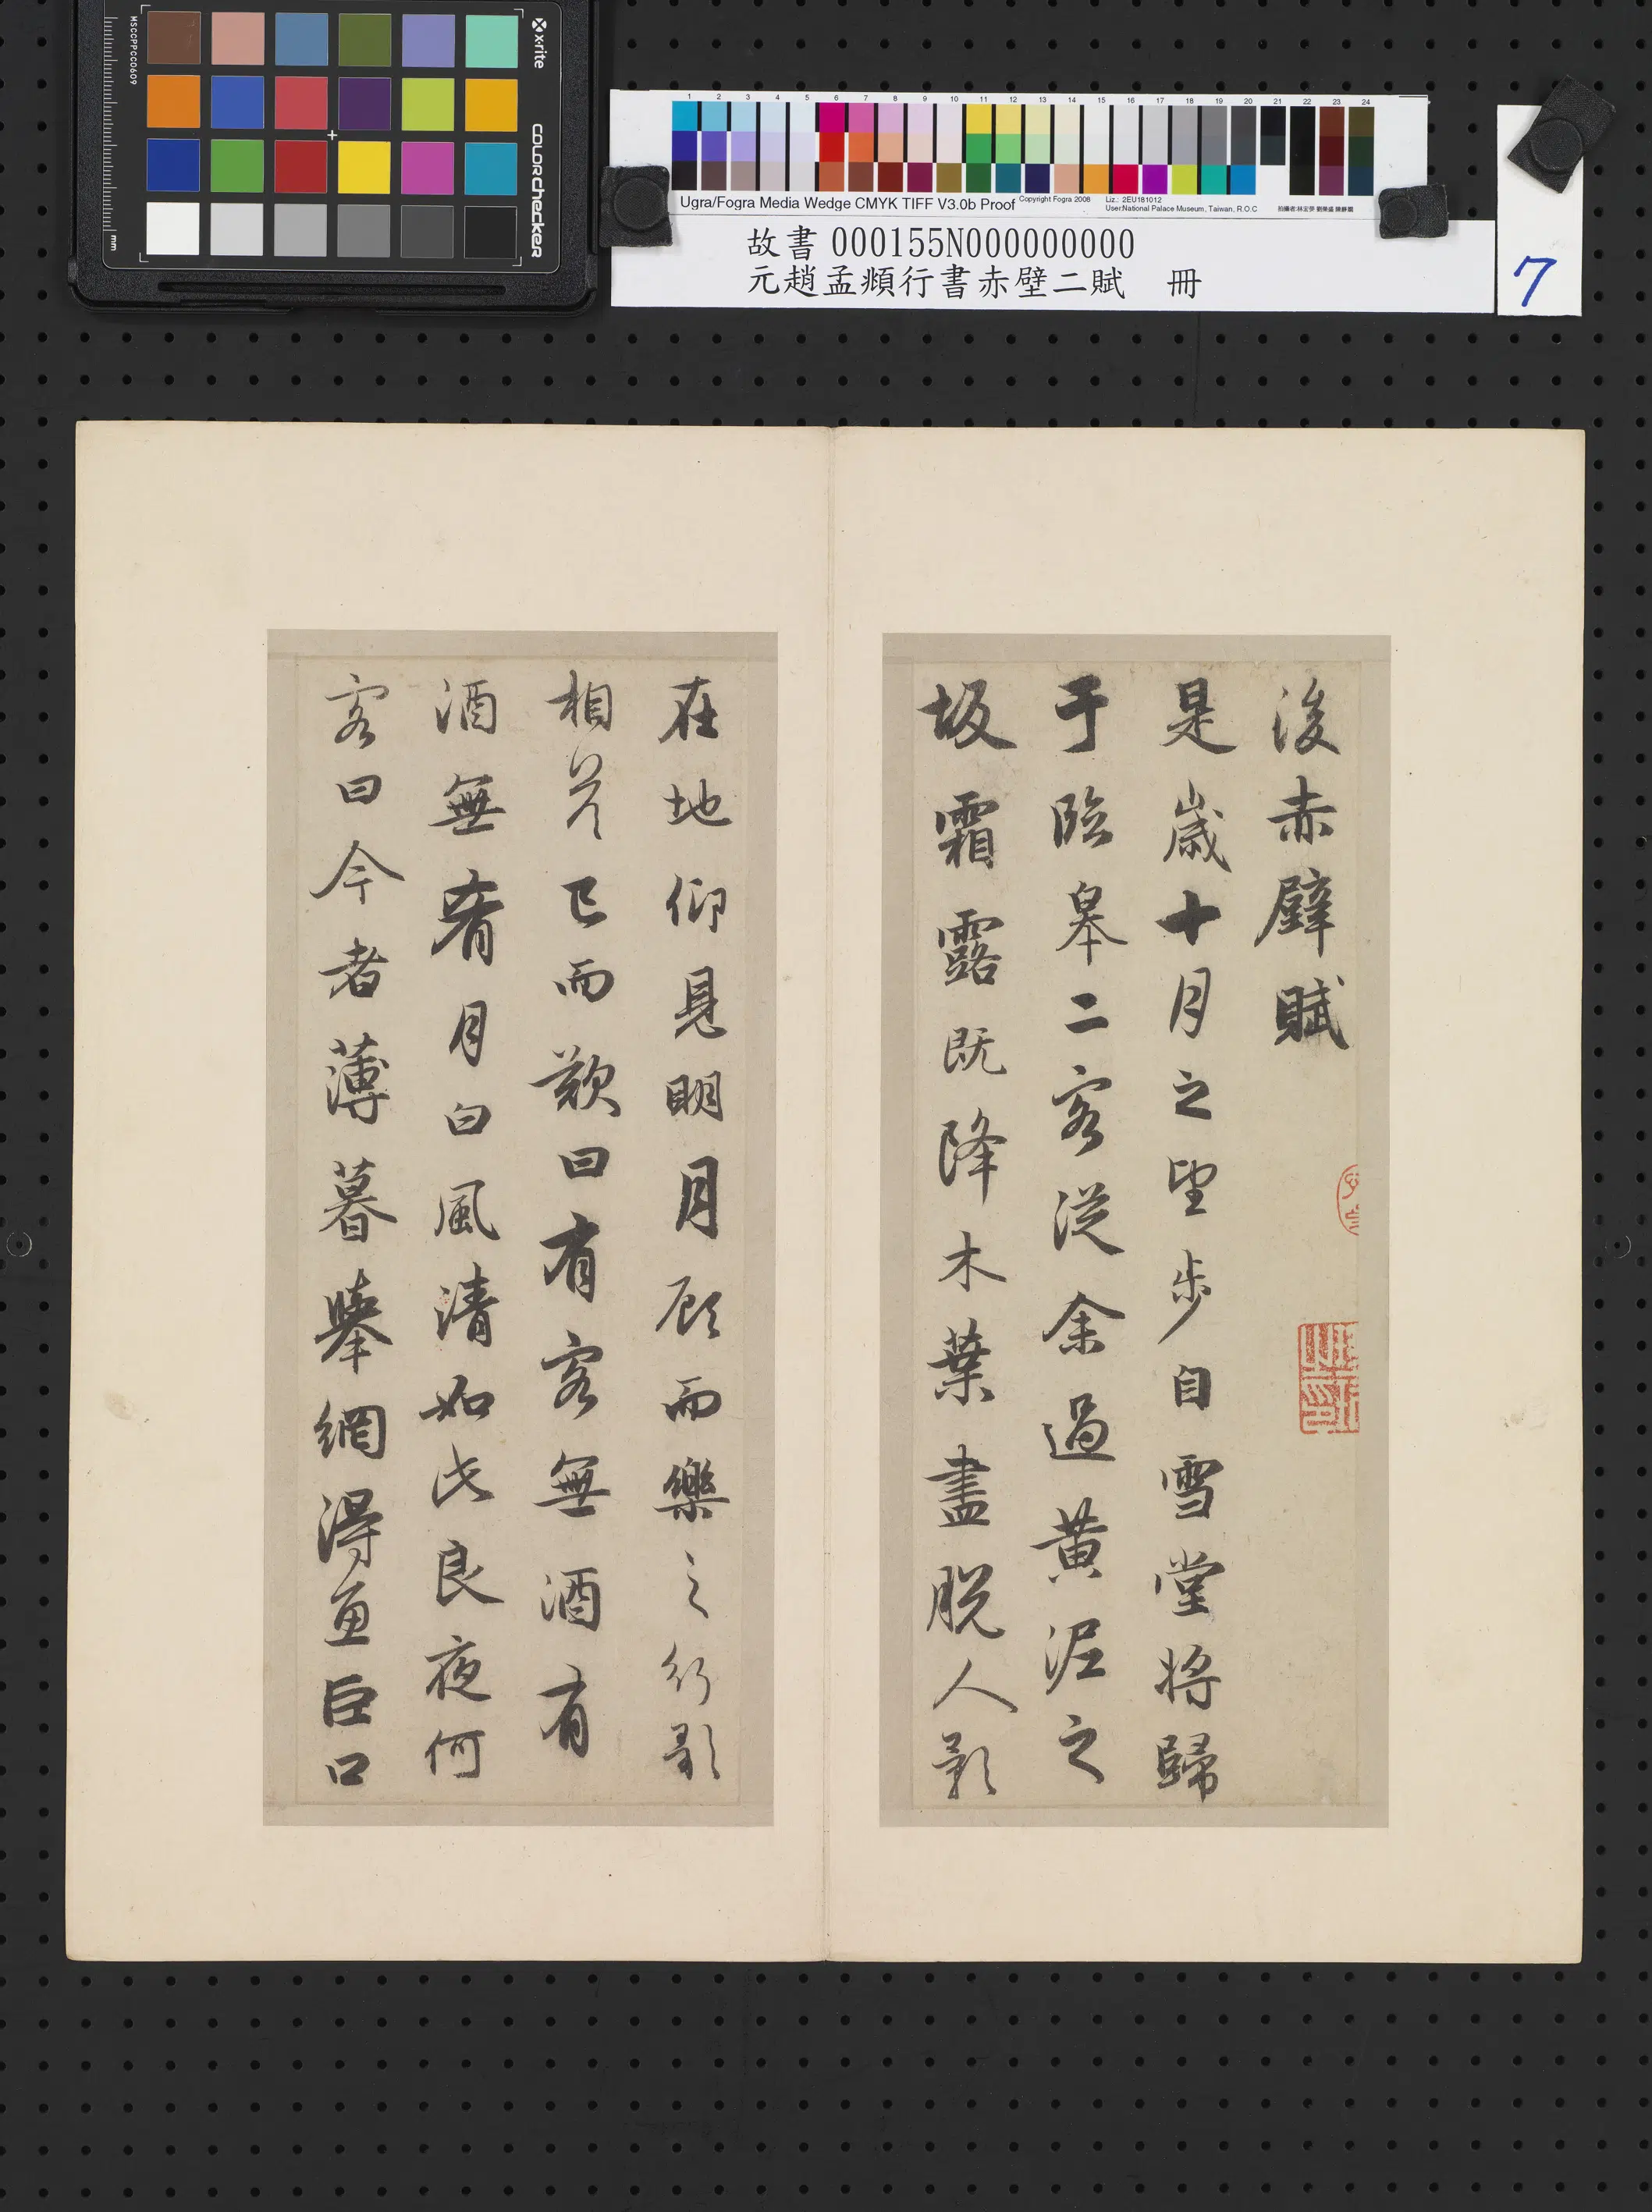 MSCCPPCC0609
x-rite
colorchecker
mm
1 2 3 4 5 6 7 8 9 10 11 12 13 14 15 16 17 18 19 20 21 22 23 24
Ugra/Fogra Media Wedge CMYK TIFF V3.0b Proof
Copyright Fogra 2008
Liz.: 2EU181012
User:National Palace Museum, Taiwan, R.O.C
故書 000155N000000000
元趙孟頫行書赤壁二賦 冊
7
後赤壁賦
是歲十月之望步自雪堂將歸
于臨皋二客從余過黃泥之
坂霜露既降木葉盡脫人影
在地仰見明月顧而樂之行歌
相答已而歎曰有客無酒有
酒無肴月白風清如此良夜何
客曰今者薄暮舉網得魚巨口